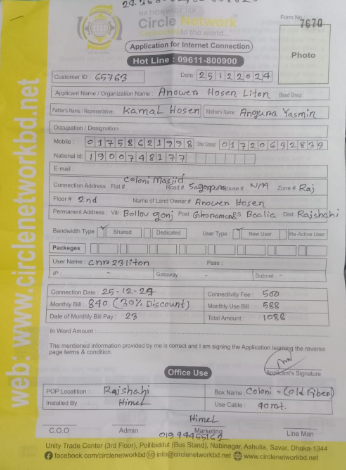 Circle Network
Form No. 7670
Application for Internet Connection
Hot Line : 09611-800900
Photo
Customer ID : 65763
Date : 25122024
Applicant Name / Organization Name : Anowen Hosen Liton
Father's Name / Representative : Kamal Hosen Mother's Name : Anguna Yasmin
Occupation / Designation :
Mobile :
National Id : 1900748177
E-mail :
Coloni Masjid
Connection Address : Flat # Road # Sagorpara N/M Zone # Raj
Floor # 2nd Name of Land Owner # Anowen Hosen
Permanent Address : Vill Post Boalia Dist Rajshahi
Bandwidth Type Shared Dedicated User Type New User Re-Active User
Packages
User Name : cnn23liton Pass :
IP : Gateway : Subnet :
Connection Date : 25-12-24 Connectivity Fee : 500
Monthly Bill : 840 (30% Discount) Monthly Use Bill : 588
Date of Monthly Bill Pay : 23 Total Amount : 1088
In Word Amount :
The mentioned information provided by me is correct and I am signing the Application learning the reverse page terms & condition.
Applicant's Signature
Office Use
POP Location : Rajshahi Box Name : Coloni - (Old Fyber)
Installed By : Himel Use Cable : 40 mt.
Himel
C.O.O Admin Marketing Line Man
Unity Trade Center (3rd Floor), Pollibiddut (Bus Stand), Nabinagar, Ashulia, Savar, Dhaka-1344
facebook.com/circlenetworkbd info@circlenetworkbd.net www.circlenetworkbd.net
web: www.circlenetworkbd.net